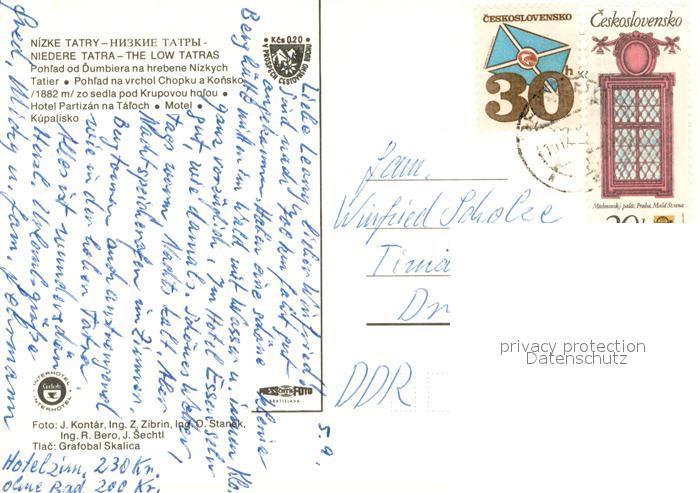 NÍZKE TATRY – НИЗКИЕ ТАТРЫ -
NIEDERE TATRA – THE LOW TATRAS
Pohľad od Ďumbiera na hrebene Nízkych
Tatier • Pohľad na vrchol Chopku a Koňsko
/1882 m/ zo sedla pod Krupovou hoľou •
Hotel Partizán na Táľoch • Motel •
Kúpalisko
Kčs 0.20
ČESKOSLOVENSKO
30h
Československo
Michnovský palác, Praha, Malá Strana
Liebe Leunis, lieber Winfried!
Sind nach 900 km Fahrt gut
angekommen. Haben eine schöne
Berghütte mitten im Wald mit Wasser u. innen Klo
ganz vorzüglich, im Hotel Essen sehr
gut, wie damals. Schönes Wetter,
tags warm Nachts kalt. Aber
Nachtspeicherofen im Zimmer.
Bergtouren auch anstrengend
wie in der hohen Tatra.
Alles ist wunderschön.
Herzl. Urlaubsgrüße
Fred,
u. Fam.
5.9.
Fam.
Winfried Scholze
DDR
privacy protection
Datenschutz
INTERHOTEL
INTERHOTEL
PRESSFOTO
BRATISLAVA
Foto: J. Kontár, Ing. Z. Zibrin, Ing. O. Stanek,
Ing. R. Bero, J. Šechtl
Tlač: Grafobal Skalica
Hotelzim. 230 Kr.
ohne Bad 200 Kr.